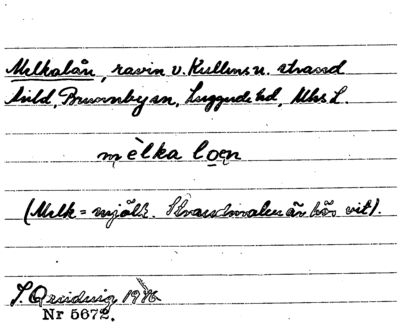 Melkalån, ravin v. Kullens n. strand
Arild, Brunnby sn, Luggude hd, Mhs L.
mèlka lo̱en
(Melk = mjölk. Strandvallen är här vit).
1926
Nr 5672.